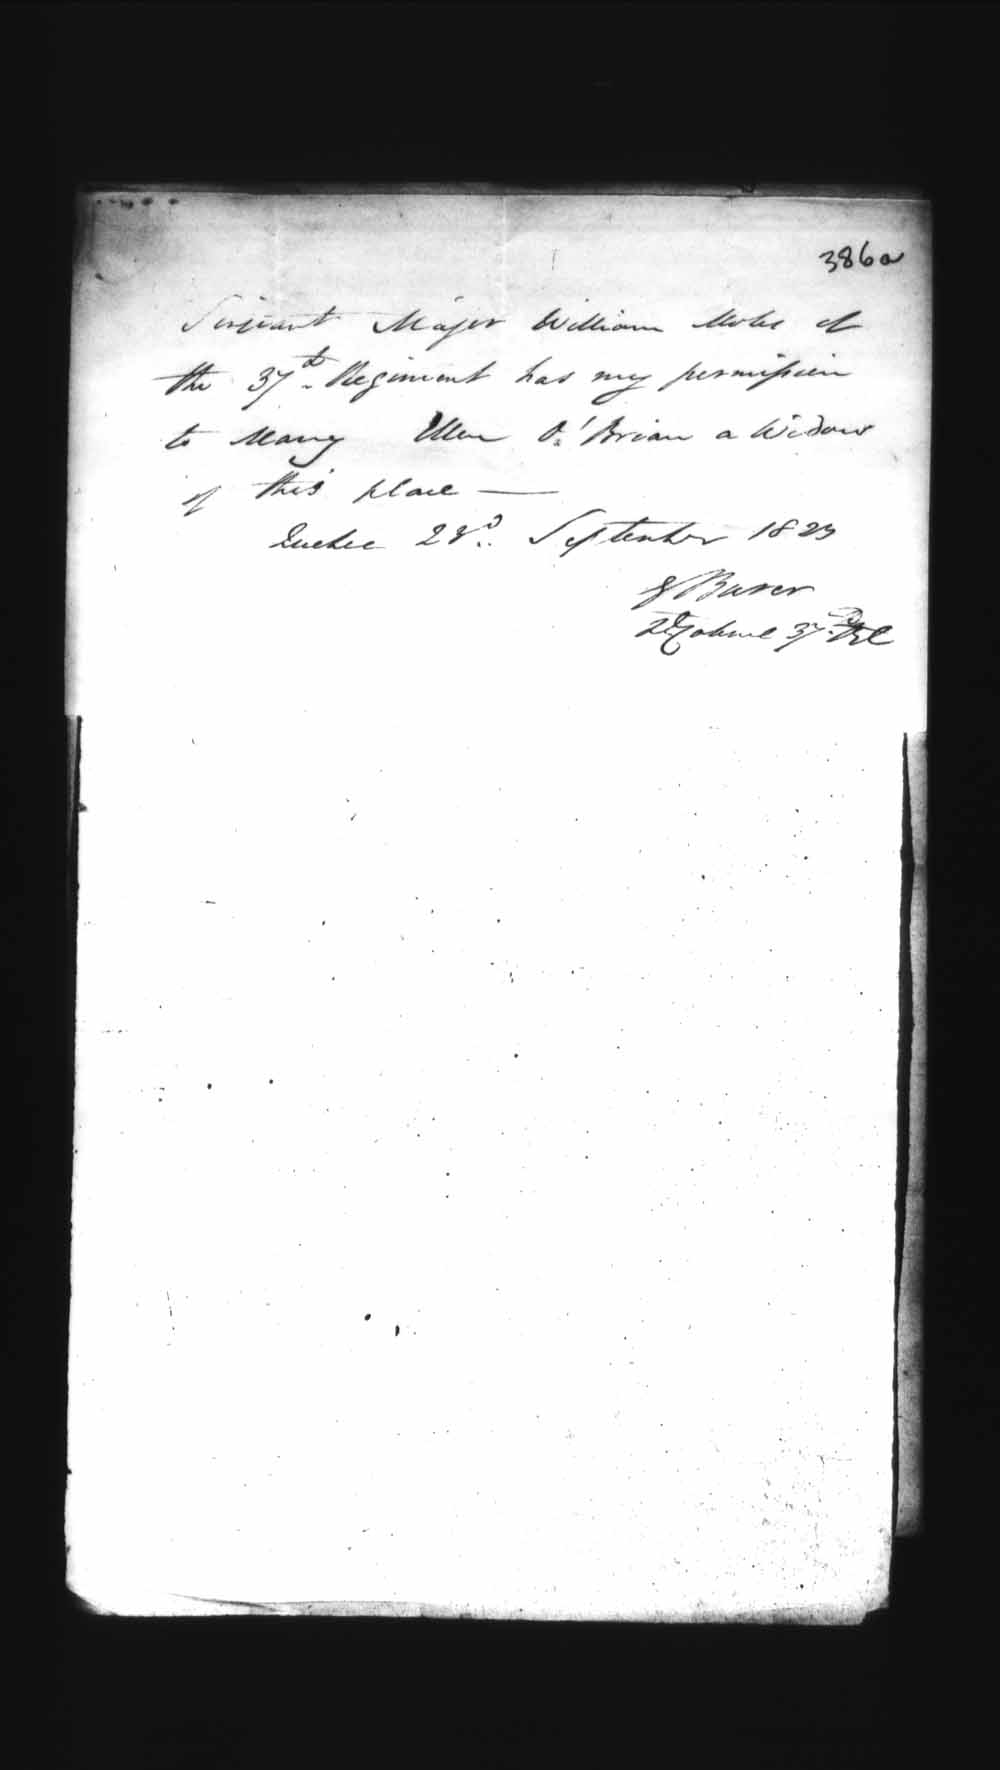 386a
Serjeant Major William of
the 37th Regiment has my permission
to Marry Ellen O'Brian a Widow
of this place —
Quebec 28d. September 1823
Colonel 37